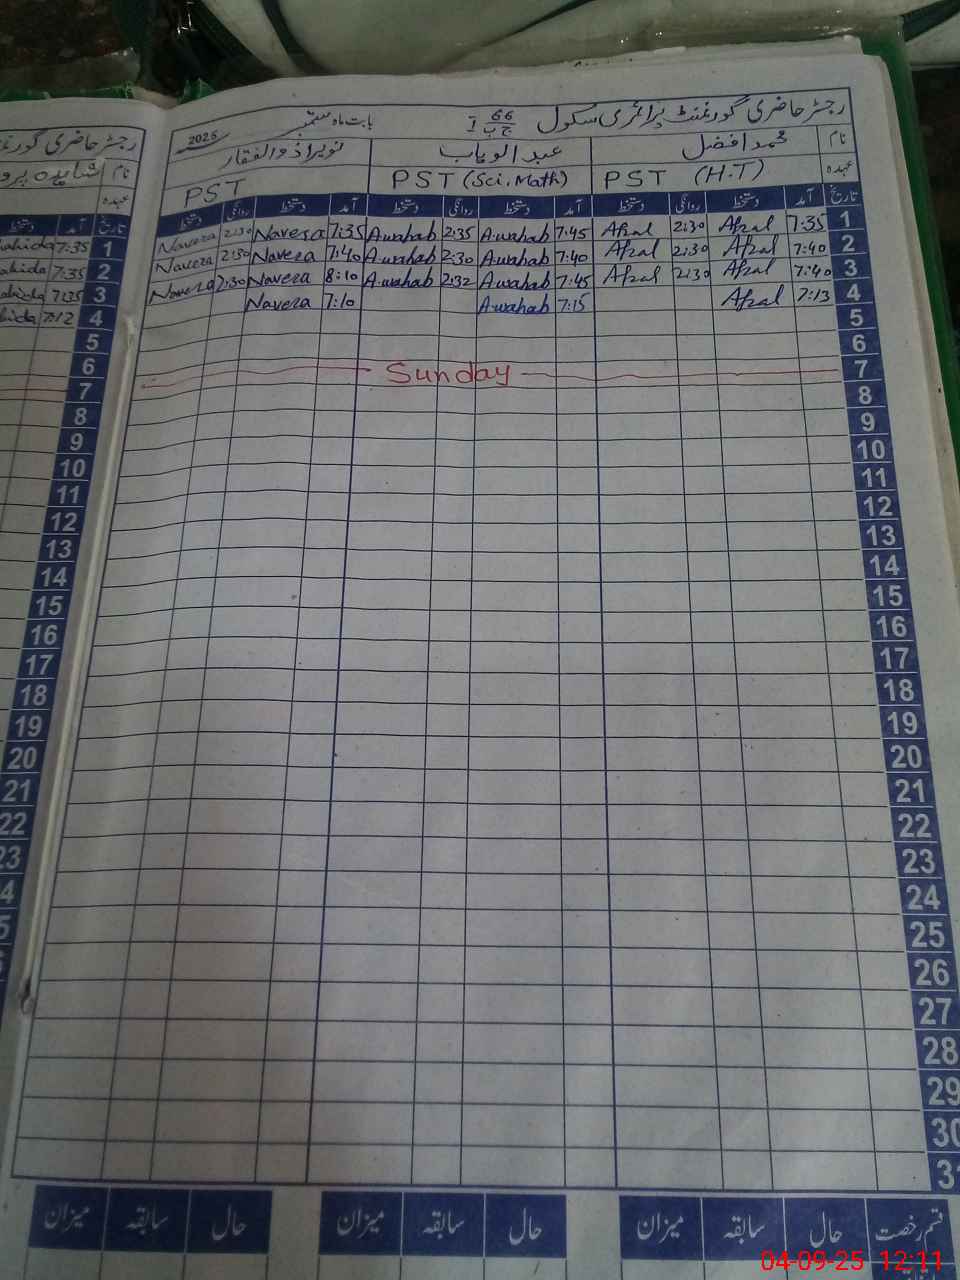 رجسٹر حاضری گورنمنٹ پرائمری سکول 66 ج ب I بابت ماہ ستمبر 2025
نام محمد افضل عبدالوہاب نویرا ذوالفقار
عہدہ PST (H.T) PST (Sci, Math) PST
تاریخ آمد دستخط روانگی دستخط آمد دستخط روانگی دستخط آمد دستخط روانگی دستخط
1 7:35 Afzal 2:30 Afzal 7:45 A.wahab 2:35 A.wahab 7:35 Navera 2:30 Navera
2 7:40 Afzal 2:30 Afzal 7:40 A.wahab 2:30 A.wahab 7:40 Navera 2:30 Navera
3 7:40 Afzal 2:30 Afzal 7:45 A.wahab 2:32 A.wahab 8:10 Navera 2:30 Navera
4 7:13 Afzal 7:15 A.wahab 7:10 Navera
5
6
7 Sunday
8
9
10
11
12
13
14
15
16
17
18
19
20
21
22
23
24
25
26
27
28
29
30
31
قسم رخصت حال سابقہ میزان حال سابقہ میزان حال سابقہ میزان
رجسٹر حاضری
نام شاہدہ
عہدہ
تاریخ آمد
1 7:35
2 7:35
3 7:35
4 7:12
5
6
7
8
9
10
11
12
13
14
15
16
17
18
19
20
21
22
23
04-09-25 12:11